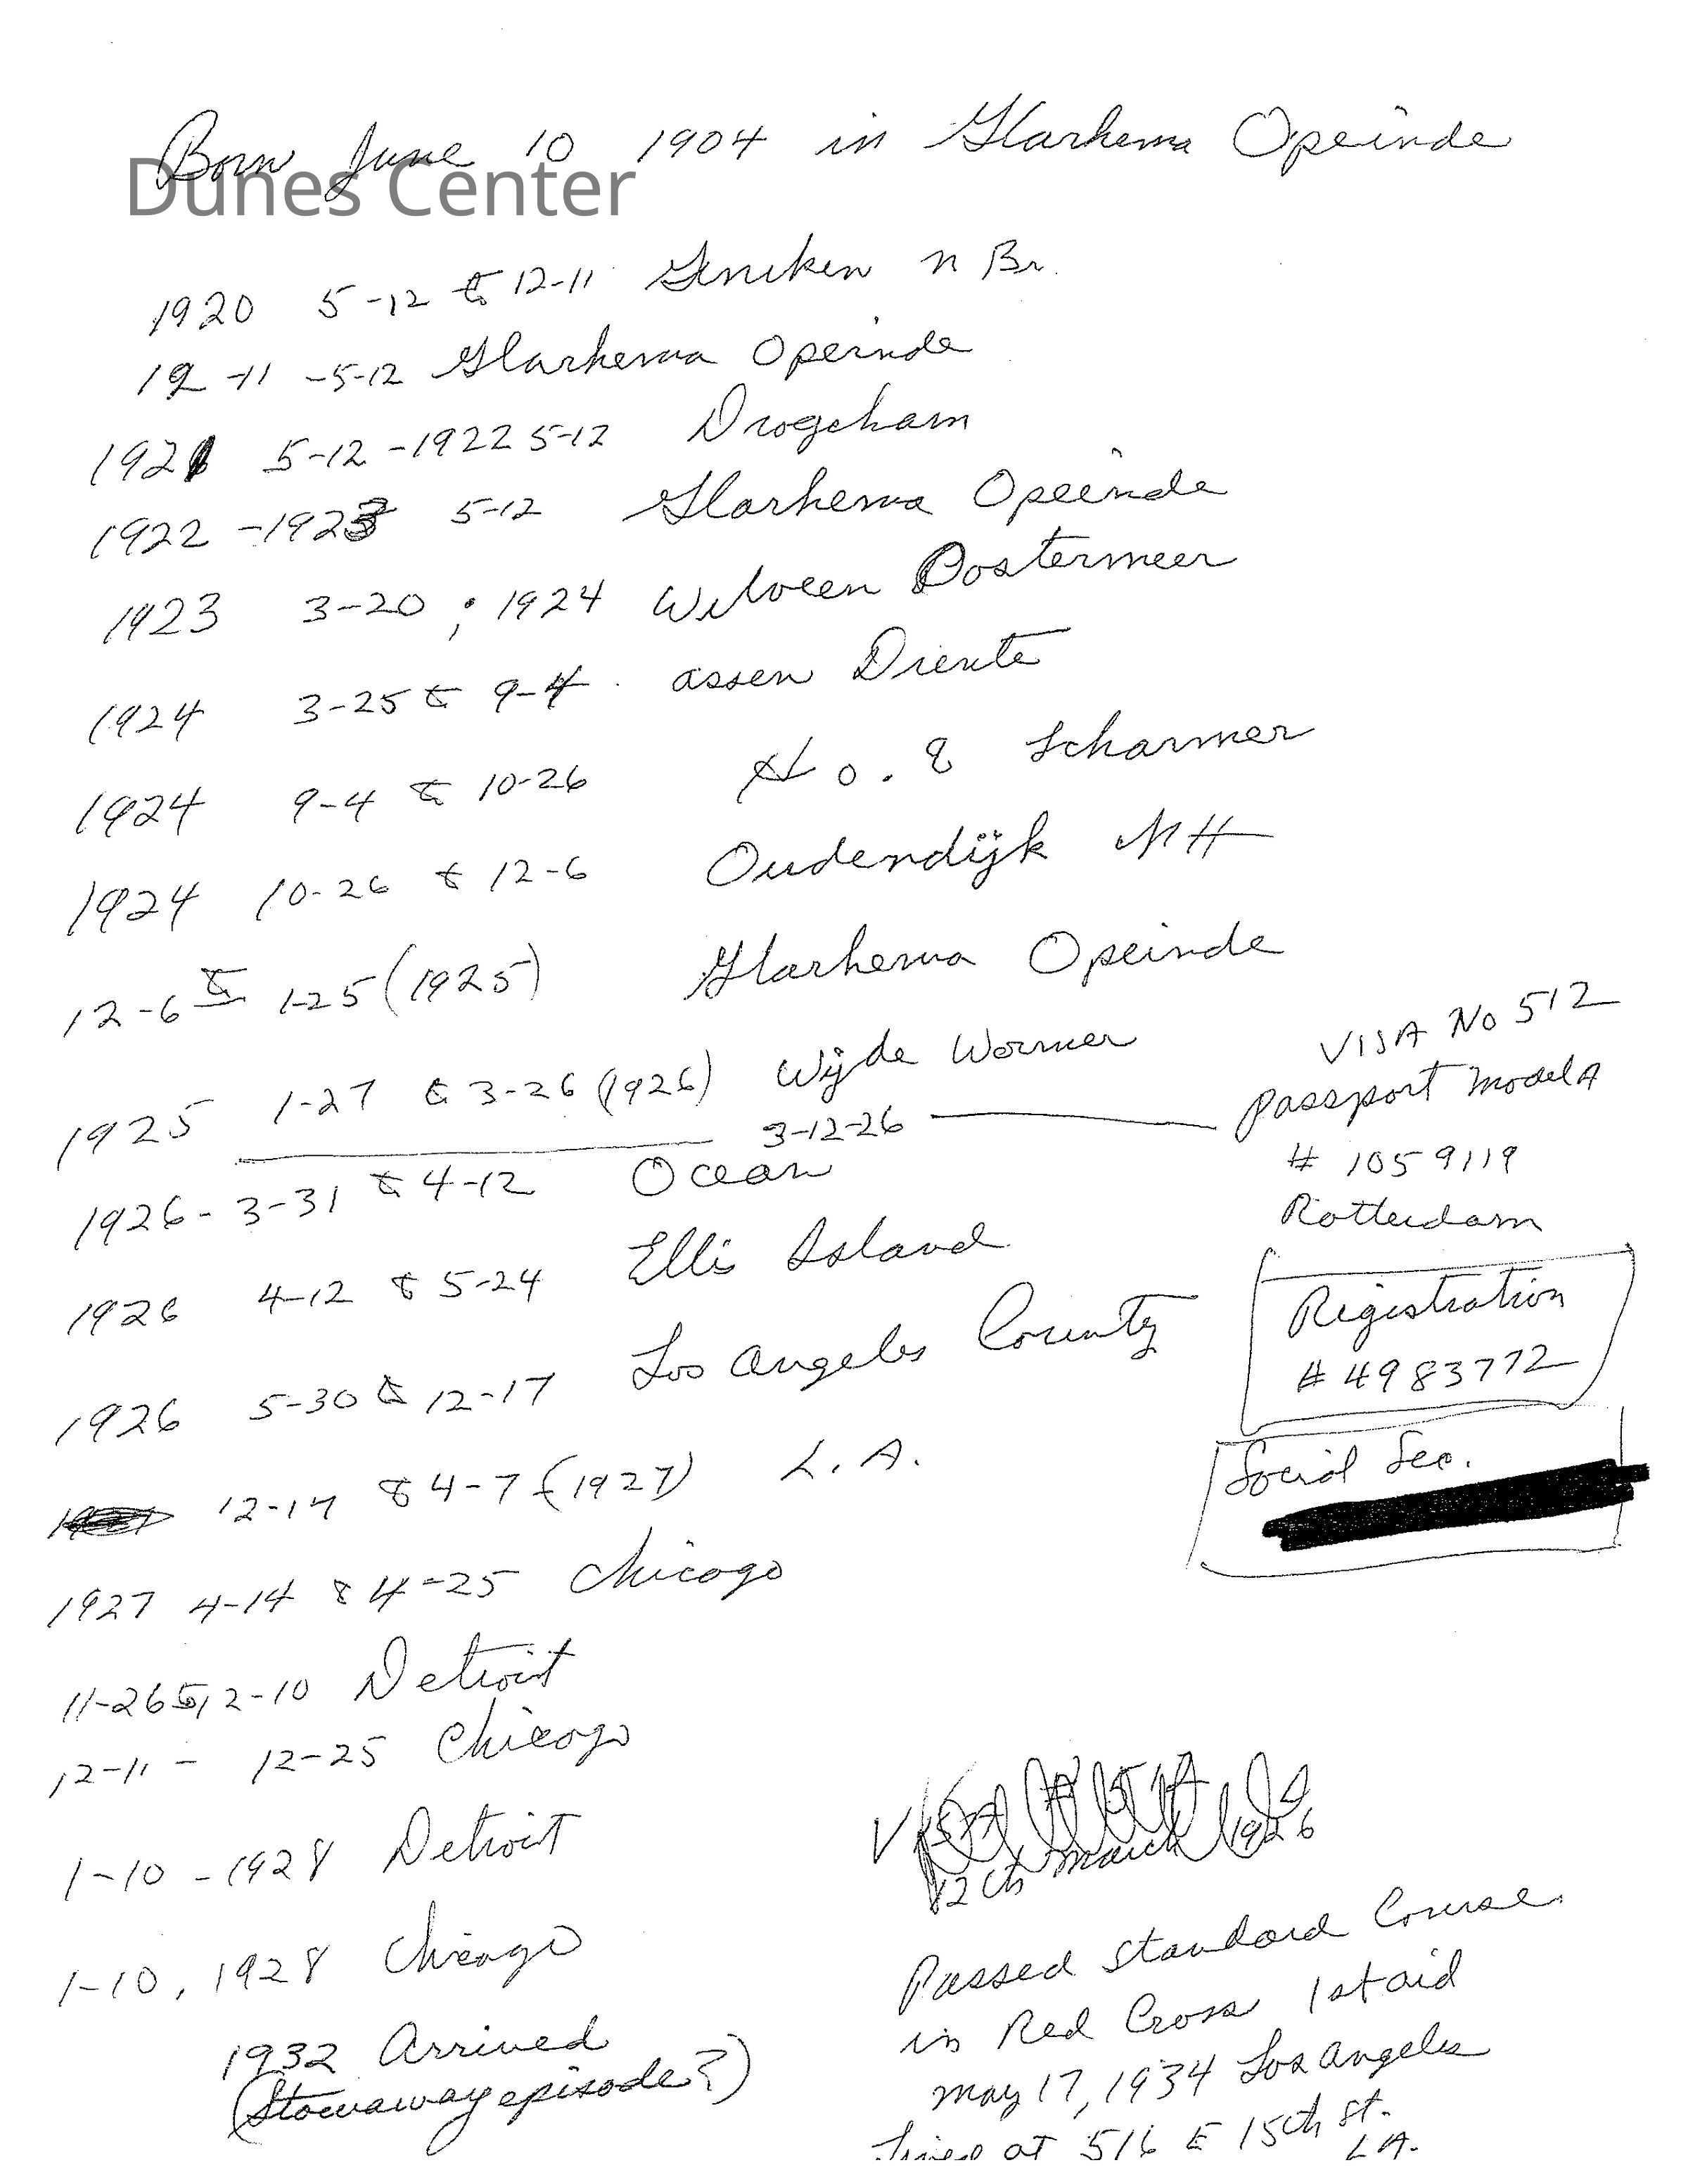 Born June 10 1904 in Harkema Opeinde
Dunes Center
1920 5-12 to 12-11 N Br.
12-11 -5-12 Harkema Opeinde
1921 5-12 - 1922 5-12 Drogeham
1922 - 1923 5-12 Harkema Opeinde
1923 3-20 ; 1924 Oostermeer
1924 3-25 to 9-4 assen Drente
1924 9-4 to 10-26 Scharmer
1924 10-26 to 12-6 Oudendijk NH
12-6 to 1-25 (1925) Harkema Opeinde
1925 1-27 to 3-26 (1926) Wijde Wormer
3-12-26
VISA No 512
Passport Model A
# 1059119
Rotterdam
1926 - 3-31 to 4-12 Ocean
1926 4-12 to 5-24 Ellis Island
1926 5-30 to 12-17 Los Angeles County
12-17 to 4-7 (1927) L.A.
1927 4-14 to 4-25 Chicago
11-26 to 12-10 Detroit
12-11 - 12-25 Chicago
1-10 - 1928 Detroit
1-10, 1928 Chicago
1932 Arrived
(Stowaway episode?)
Registration
# 4983772
Social Sec.
12th March 1926
Passed Standard Course
in Red Cross 1st aid
May 17, 1934 Los Angeles
Lived at 516 E 15th St.
LA.